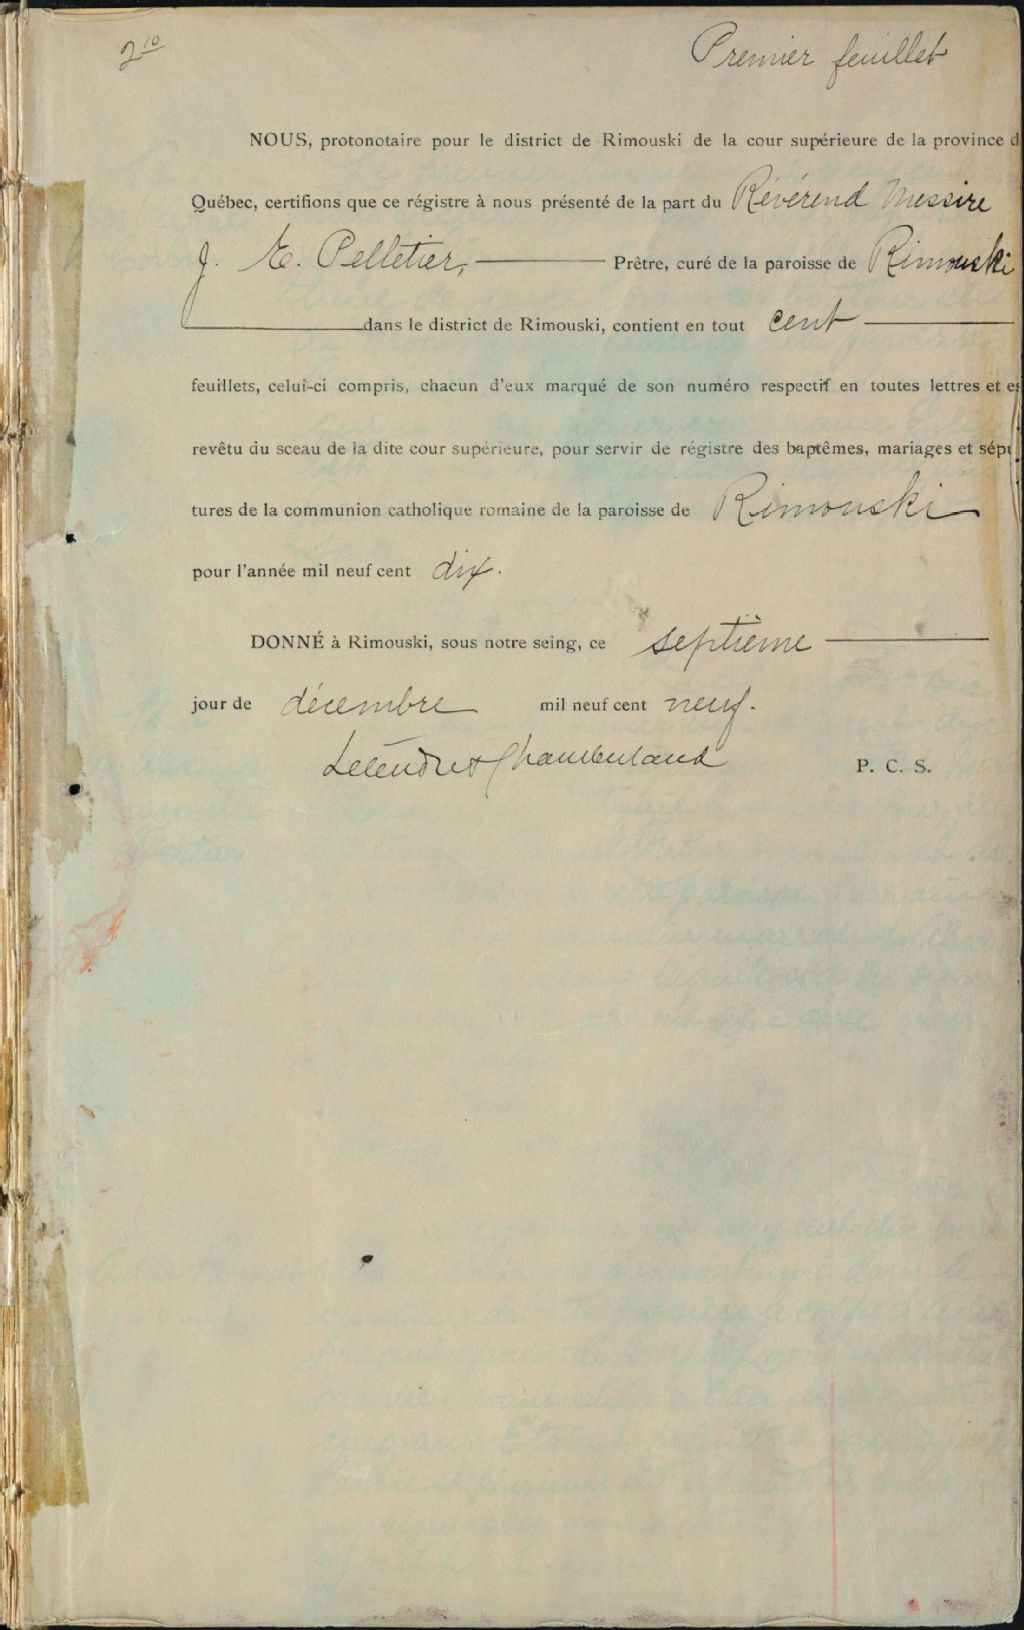 2¹⁰
Premier feuillet
NOUS, protonotaire pour le district de Rimouski de la cour supérieure de la province d
Québec, certifions que ce régistre à nous présenté de la part du Révérend Messire
J. E. Pelletier, Prêtre, curé de la paroisse de Rimouski
dans le district de Rimouski, contient en tout cent
feuillets, celui-ci compris, chacun d'eux marqué de son numéro respectif en toutes lettres et es
revêtu du sceau de la dite cour supérieure, pour servir de régistre des baptêmes, mariages et sépu
tures de la communion catholique romaine de la paroisse de Rimouski
pour l'année mil neuf cent dix.
DONNÉ à Rimouski, sous notre seing, ce septième
jour de décembre mil neuf cent neuf.
Letendre & Chamberland P. C. S.